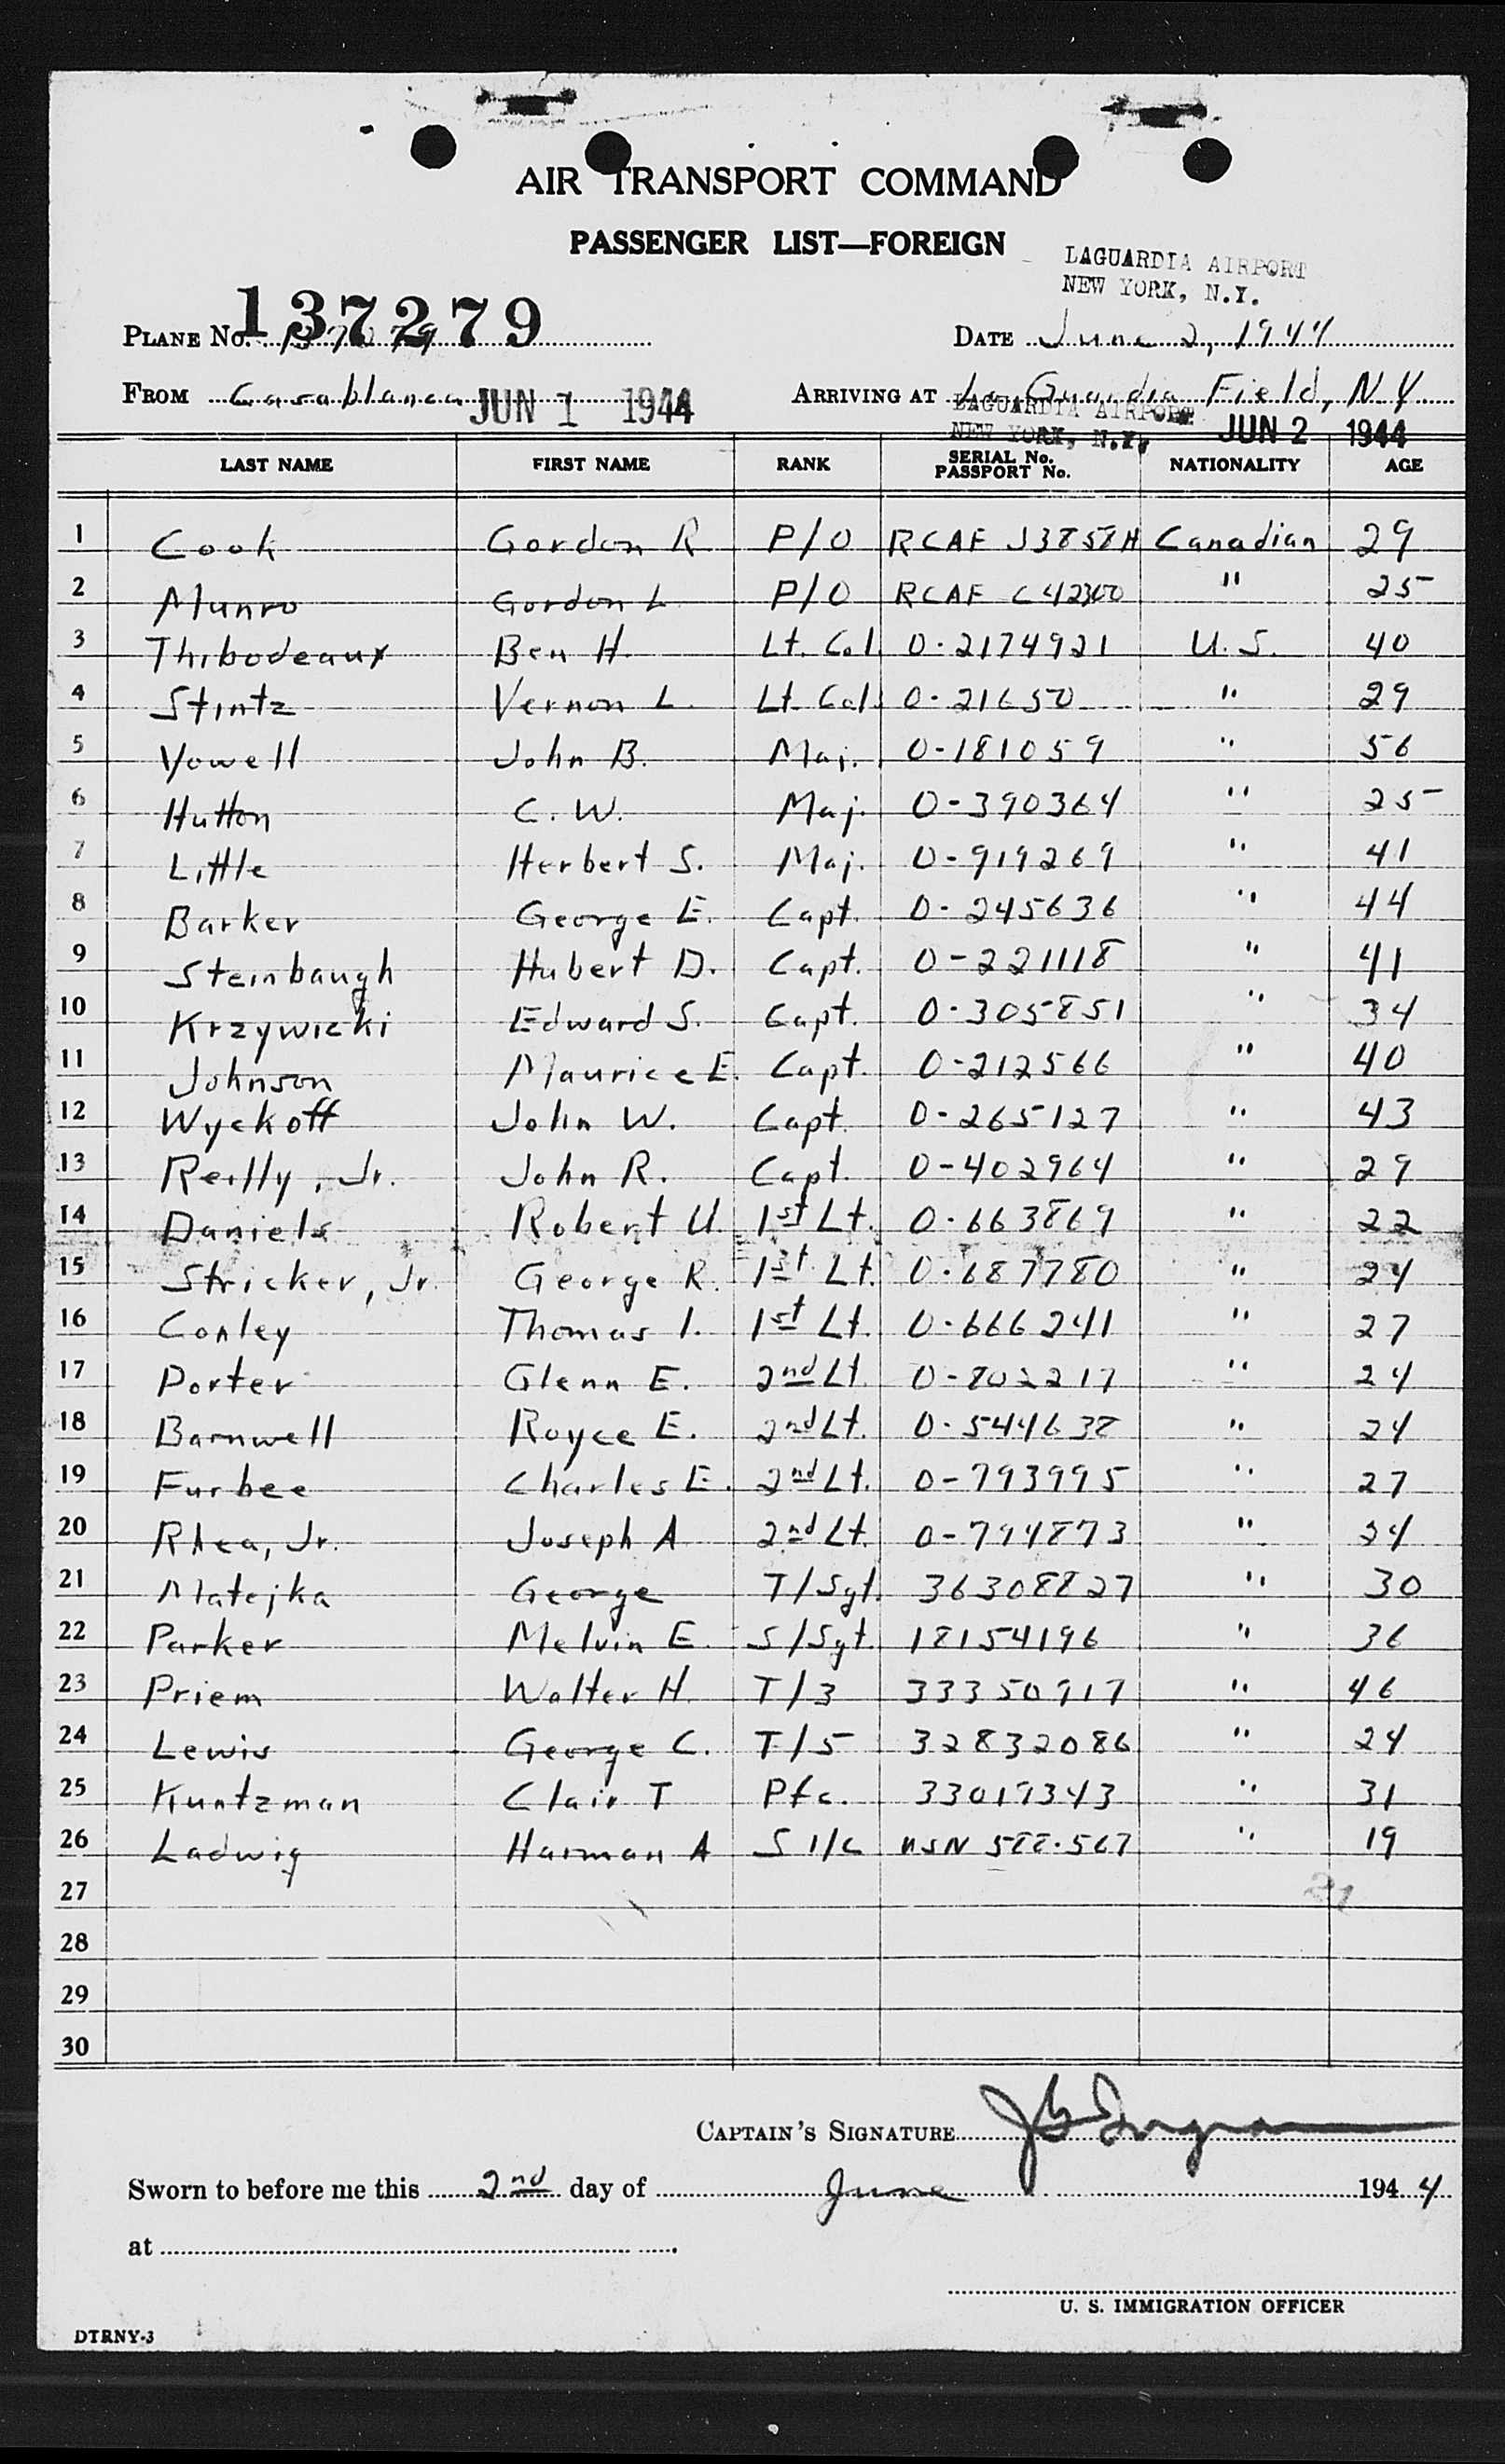 AIR TRANSPORT COMMAND
PASSENGER LIST—FOREIGN
LAGUARDIA AIRPORT
NEW YORK, N.Y.
PLANE No. 137279
DATE June 2, 1944
FROM Casablanca JUN 1 1944
ARRIVING AT La Guardia Field, N.Y.
LAGUARDIA AIRPORT
NEW YORK, N.Y. JUN 2 1944
LAST NAME FIRST NAME RANK SERIAL No. PASSPORT No. NATIONALITY AGE
1 Cook Gordon R P/O RCAF Canadian 29
2 Munro Gordon L P/O RCAF " 25
3 Thibodeaux Ben H. Lt. Col. O-2174921 U.S. 40
4 Stintz Vernon L. Lt. Col. O-21650 " 29
5 Vowell John B. Maj. O-181059 " 56
6 Hutton C. W. Maj. O-390364 " 25
7 Little Herbert S. Maj. O-919269 " 41
8 Barker George E. Capt. O-245636 " 44
9 Steinbaugh Hubert D. Capt. O-221118 " 41
10 Krzywicki Edward S. Capt. O-305851 " 34
11 Johnson Maurice E. Capt. O-212566 " 40
12 Wyckoff John W. Capt. O-265127 " 43
13 Reilly, Jr. John R. Capt. O-402964 " 29
14 Daniels Robert U. 1st Lt. O-663869 " 22
15 Stricker, Jr. George R. 1st Lt. O-687780 " 24
16 Conley Thomas I. 1st Lt. O-666241 " 27
17 Porter Glenn E. 2nd Lt. O-802217 " 24
18 Barnwell Royce E. 2nd Lt. O-544638 " 24
19 Furbee Charles E. 2nd Lt. O-793995 " 27
20 Rhea, Jr. Joseph A 2nd Lt. O-794873 " 24
21 Matejka George T/Sgt. 36308827 " 30
22 Parker Melvin E. S/Sgt. 18154196 " 36
23 Priem Walter H. T/3 33350917 " 46
24 Lewis George C. T/5 32832086 " 24
25 Kuntzman Clair T Pfc. 33019343 " 31
26 Ladwig Harman A S 1/c USN 588-567 " 19
27
28
29
30
CAPTAIN'S SIGNATURE J G Ingram
Sworn to before me this 2nd day of June 1944
at
U. S. IMMIGRATION OFFICER
DTRNY-3